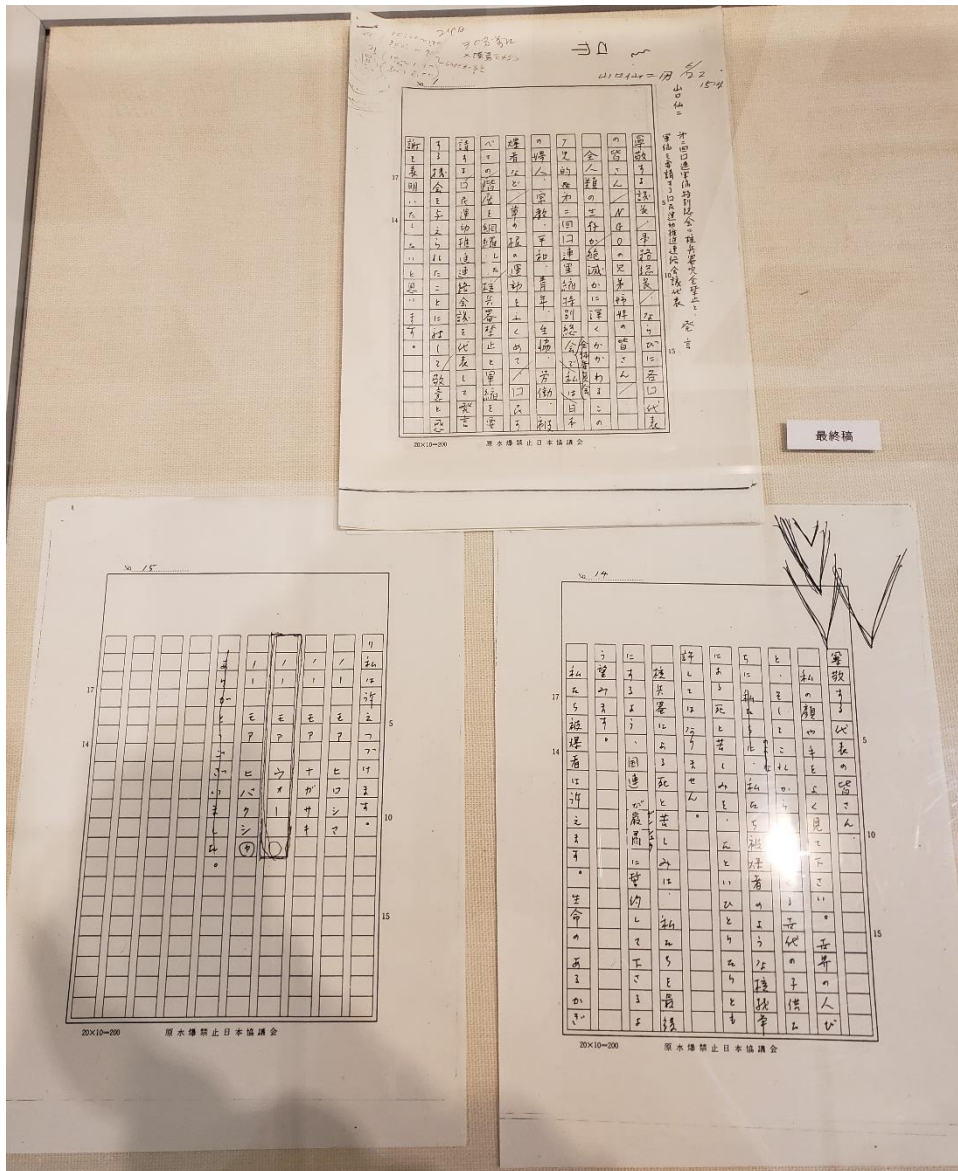 山口仙二用
山口仙二
第二回国連軍縮特別総会に核兵器完全禁止と、発言
軍縮を要請する国民運動推進連絡会議代表
尊敬する議長/事務総長/ならびに各口代表
の皆さん/NGOの兄弟姉妹の皆さん/
全人類の生存か絶滅かに深くかかわるこの
第二回口連軍縮特別総会で私は日本
全体委員会
の婦人、宗教、平和、青年、生協、労働、被
爆者など/草の根の運動をふくめて/口民す
べての階層を網羅した核兵器禁止と軍縮を要
請する口民運動推進連絡会議を代表して発言
する機会を与えられたことに対して/敬意と感
謝を表明いたしたいと思います。
5
10
15
17
14
20×10=200
原水爆禁止日本協議会
最終稿
No. 14
尊敬する代表の皆さん.
私の顔や手をよく見て下さい。世界の人び
と、そしてこれから
る世代の子供た
ちに
私たち被爆者のような核戦争
による死と苦しみを、たといひとりたりとも
許してはなりません。
核兵器による死と苦しみは、私たちを最後
にするよう、国連が厳粛に誓約して下さるよ
う望みます。
私たち被爆者は訴えます。生命のあるかぎ
5
10
15
17
14
20×10=200
原水爆禁止日本協議会
No. 15
り私は訴えつづけます。
ノー モア ヒロシマ
ノー モア ナガサキ
ノー モア ウォー
ノー モア ヒバクシャ
ありがとうございました。
5
10
15
17
14
20×10=200
原水爆禁止日本協議会